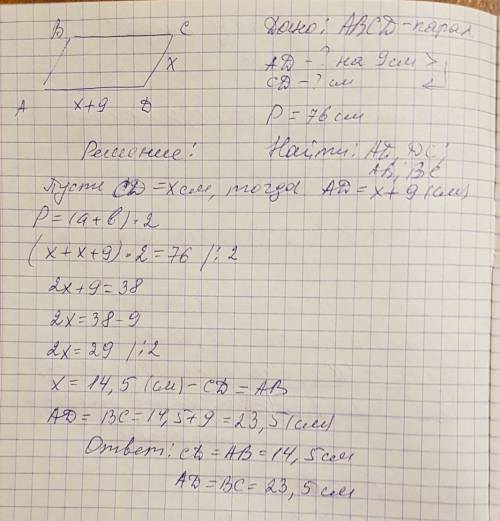 B C
x
A x+9 D
Дано: ABCD - парал
AD - ? на 9 см >
CD - ? см
P = 76 см
Найти: AD, DC,
AB, BC
Решение:
Пусть CD = x см, тогда AD = x+9 (см)
P = (a+b)·2
(x+x+9)·2=76 /:2
2x+9=38
2x=38-9
2x=29 /:2
x=14,5 (см) - CD = AB
AD = BC = 14,5+9 = 23,5 (см)
Ответ: CD = AB = 14,5 см
AD = BC = 23,5 см